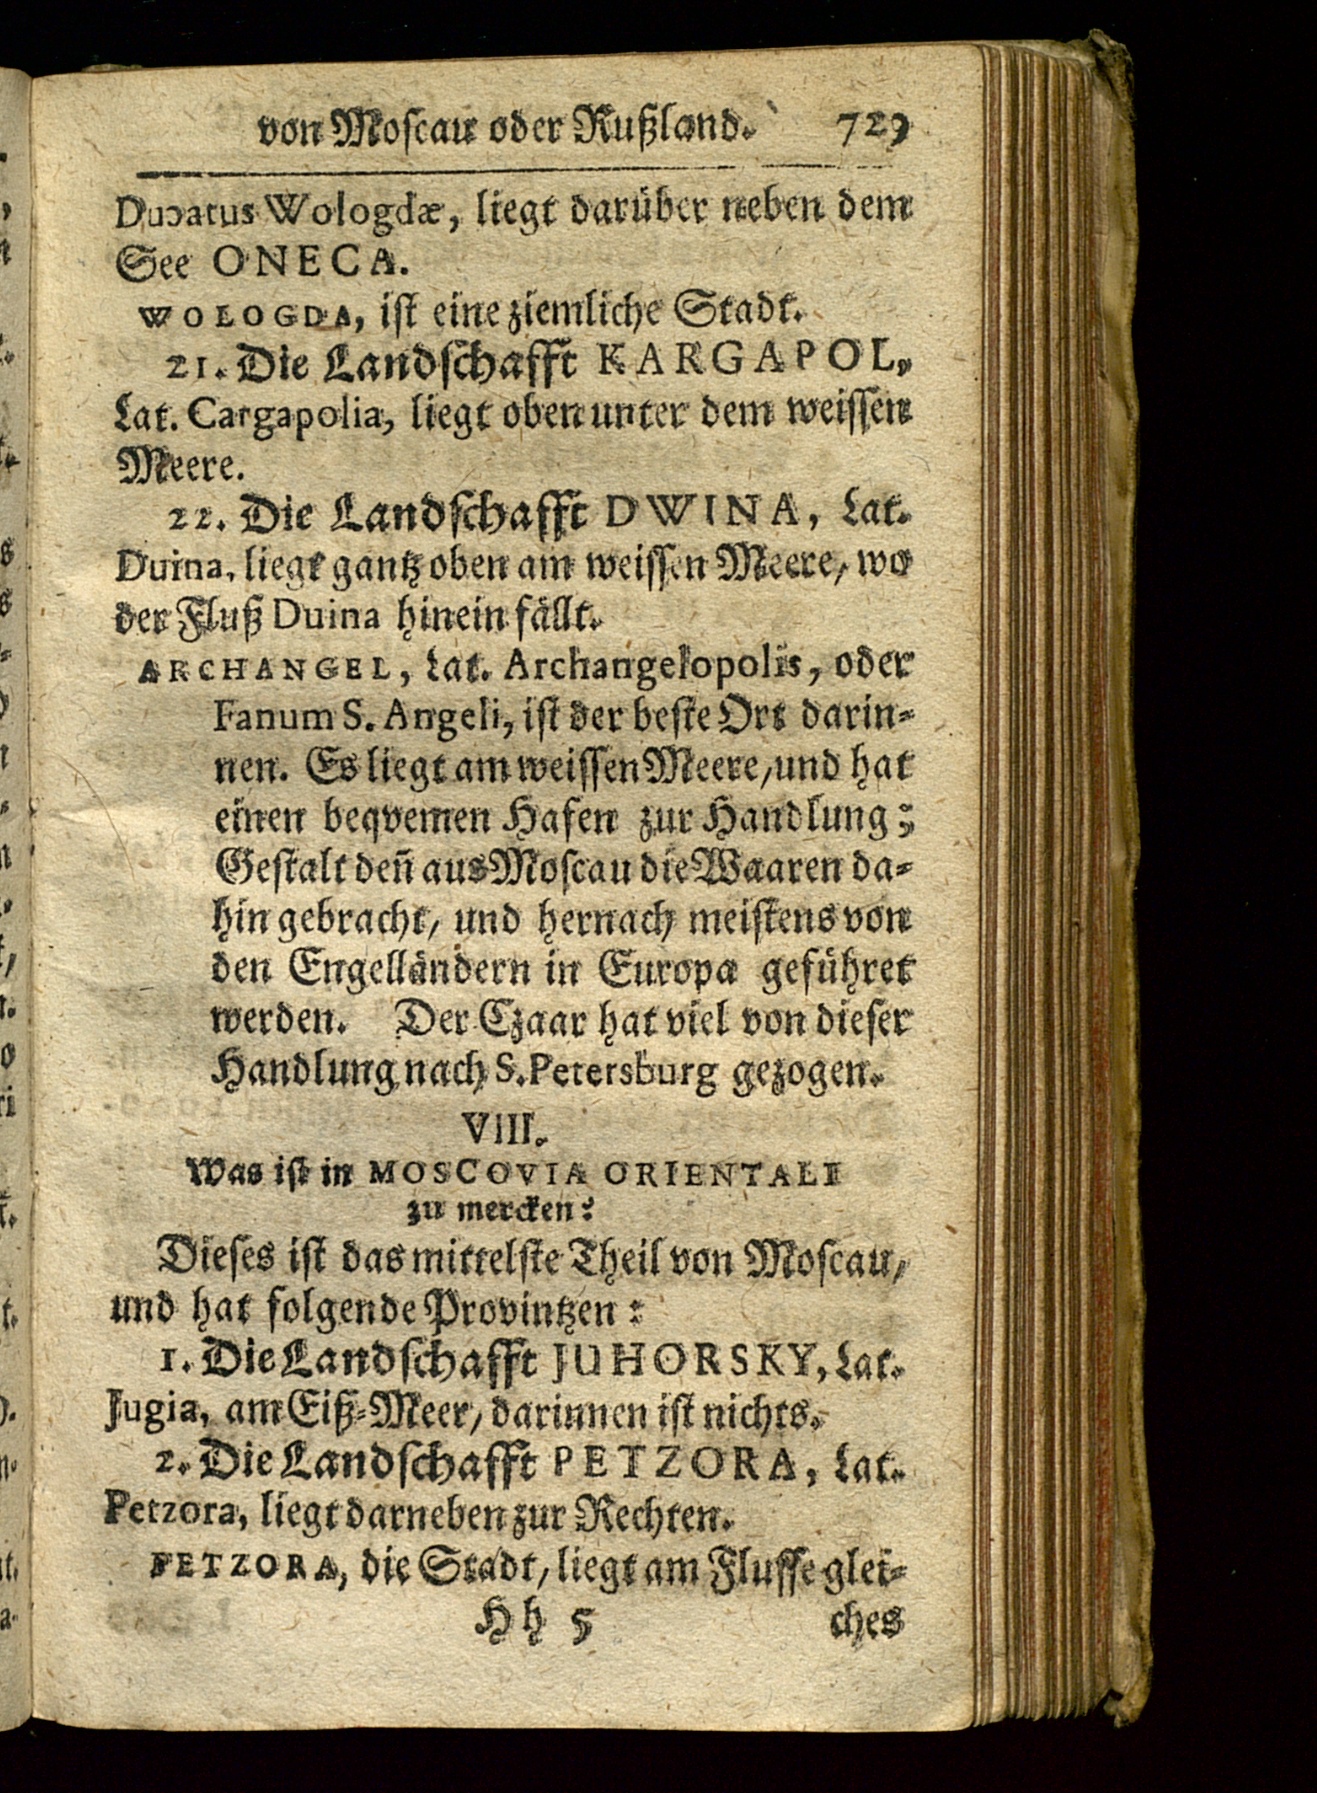 von Moscau oder Rußland. 729
Ducatus Wologdæ, liegt darüber neben dem
See ONECA.
WOLOGDA, ist eine ziemliche Stadt.
21. Die Landschafft KARGAPOL,
Lat. Cargapolia, liegt oben unter dem weissen
Meere.
22. Die Landschafft DWINA, Lat.
Duina, liegt gantz oben am weissen Meere, wo
der Fluß Duina hinein fällt.
ARCHANGEL, Lat. Archangelopolis, oder
Fanum S. Angeli, ist der beste Ort darin-
nen. Es liegt am weissen Meere, und hat
einen beqvemen Hafen zur Handlung;
Gestalt deñ aus Moscau die Waaren da-
hin gebracht, und hernach meistens von
den Engelländern in Europa geführet
werden. Der Czaar hat viel von dieser
Handlung nach S. Petersburg gezogen.
VIII.
Was ist in MOSCOVIA ORIENTALI
zu mercken?
Dieses ist das mittelste Theil von Moscau,
und hat folgende Provintzen:
1. Die Landschafft JUHORSKY, Lat.
Jugia, am Eiß-Meer, darinnen ist nichts.
2. Die Landschafft PETZORA, Lat.
Petzora, liegt darneben zur Rechten.
PETZORA, die Stadt, liegt am Flusse glei-
Hh 5 ches